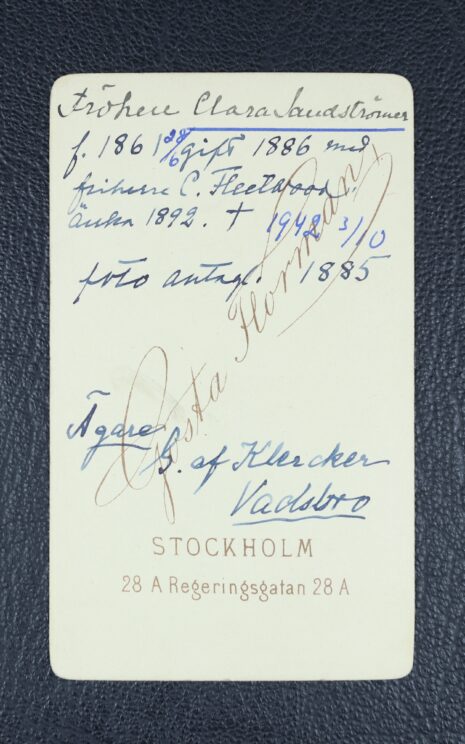 Fröken Clara Sandströmer
f. 1861 28/6 gift 1886 med
friherre C. Fleetwood,
änka 1892. † 1942 3/10
foto antagl. 1885
Gösta Florman
Ägare
G. af Klercker
Vadsbro
STOCKHOLM
28 A Regeringsgatan 28 A